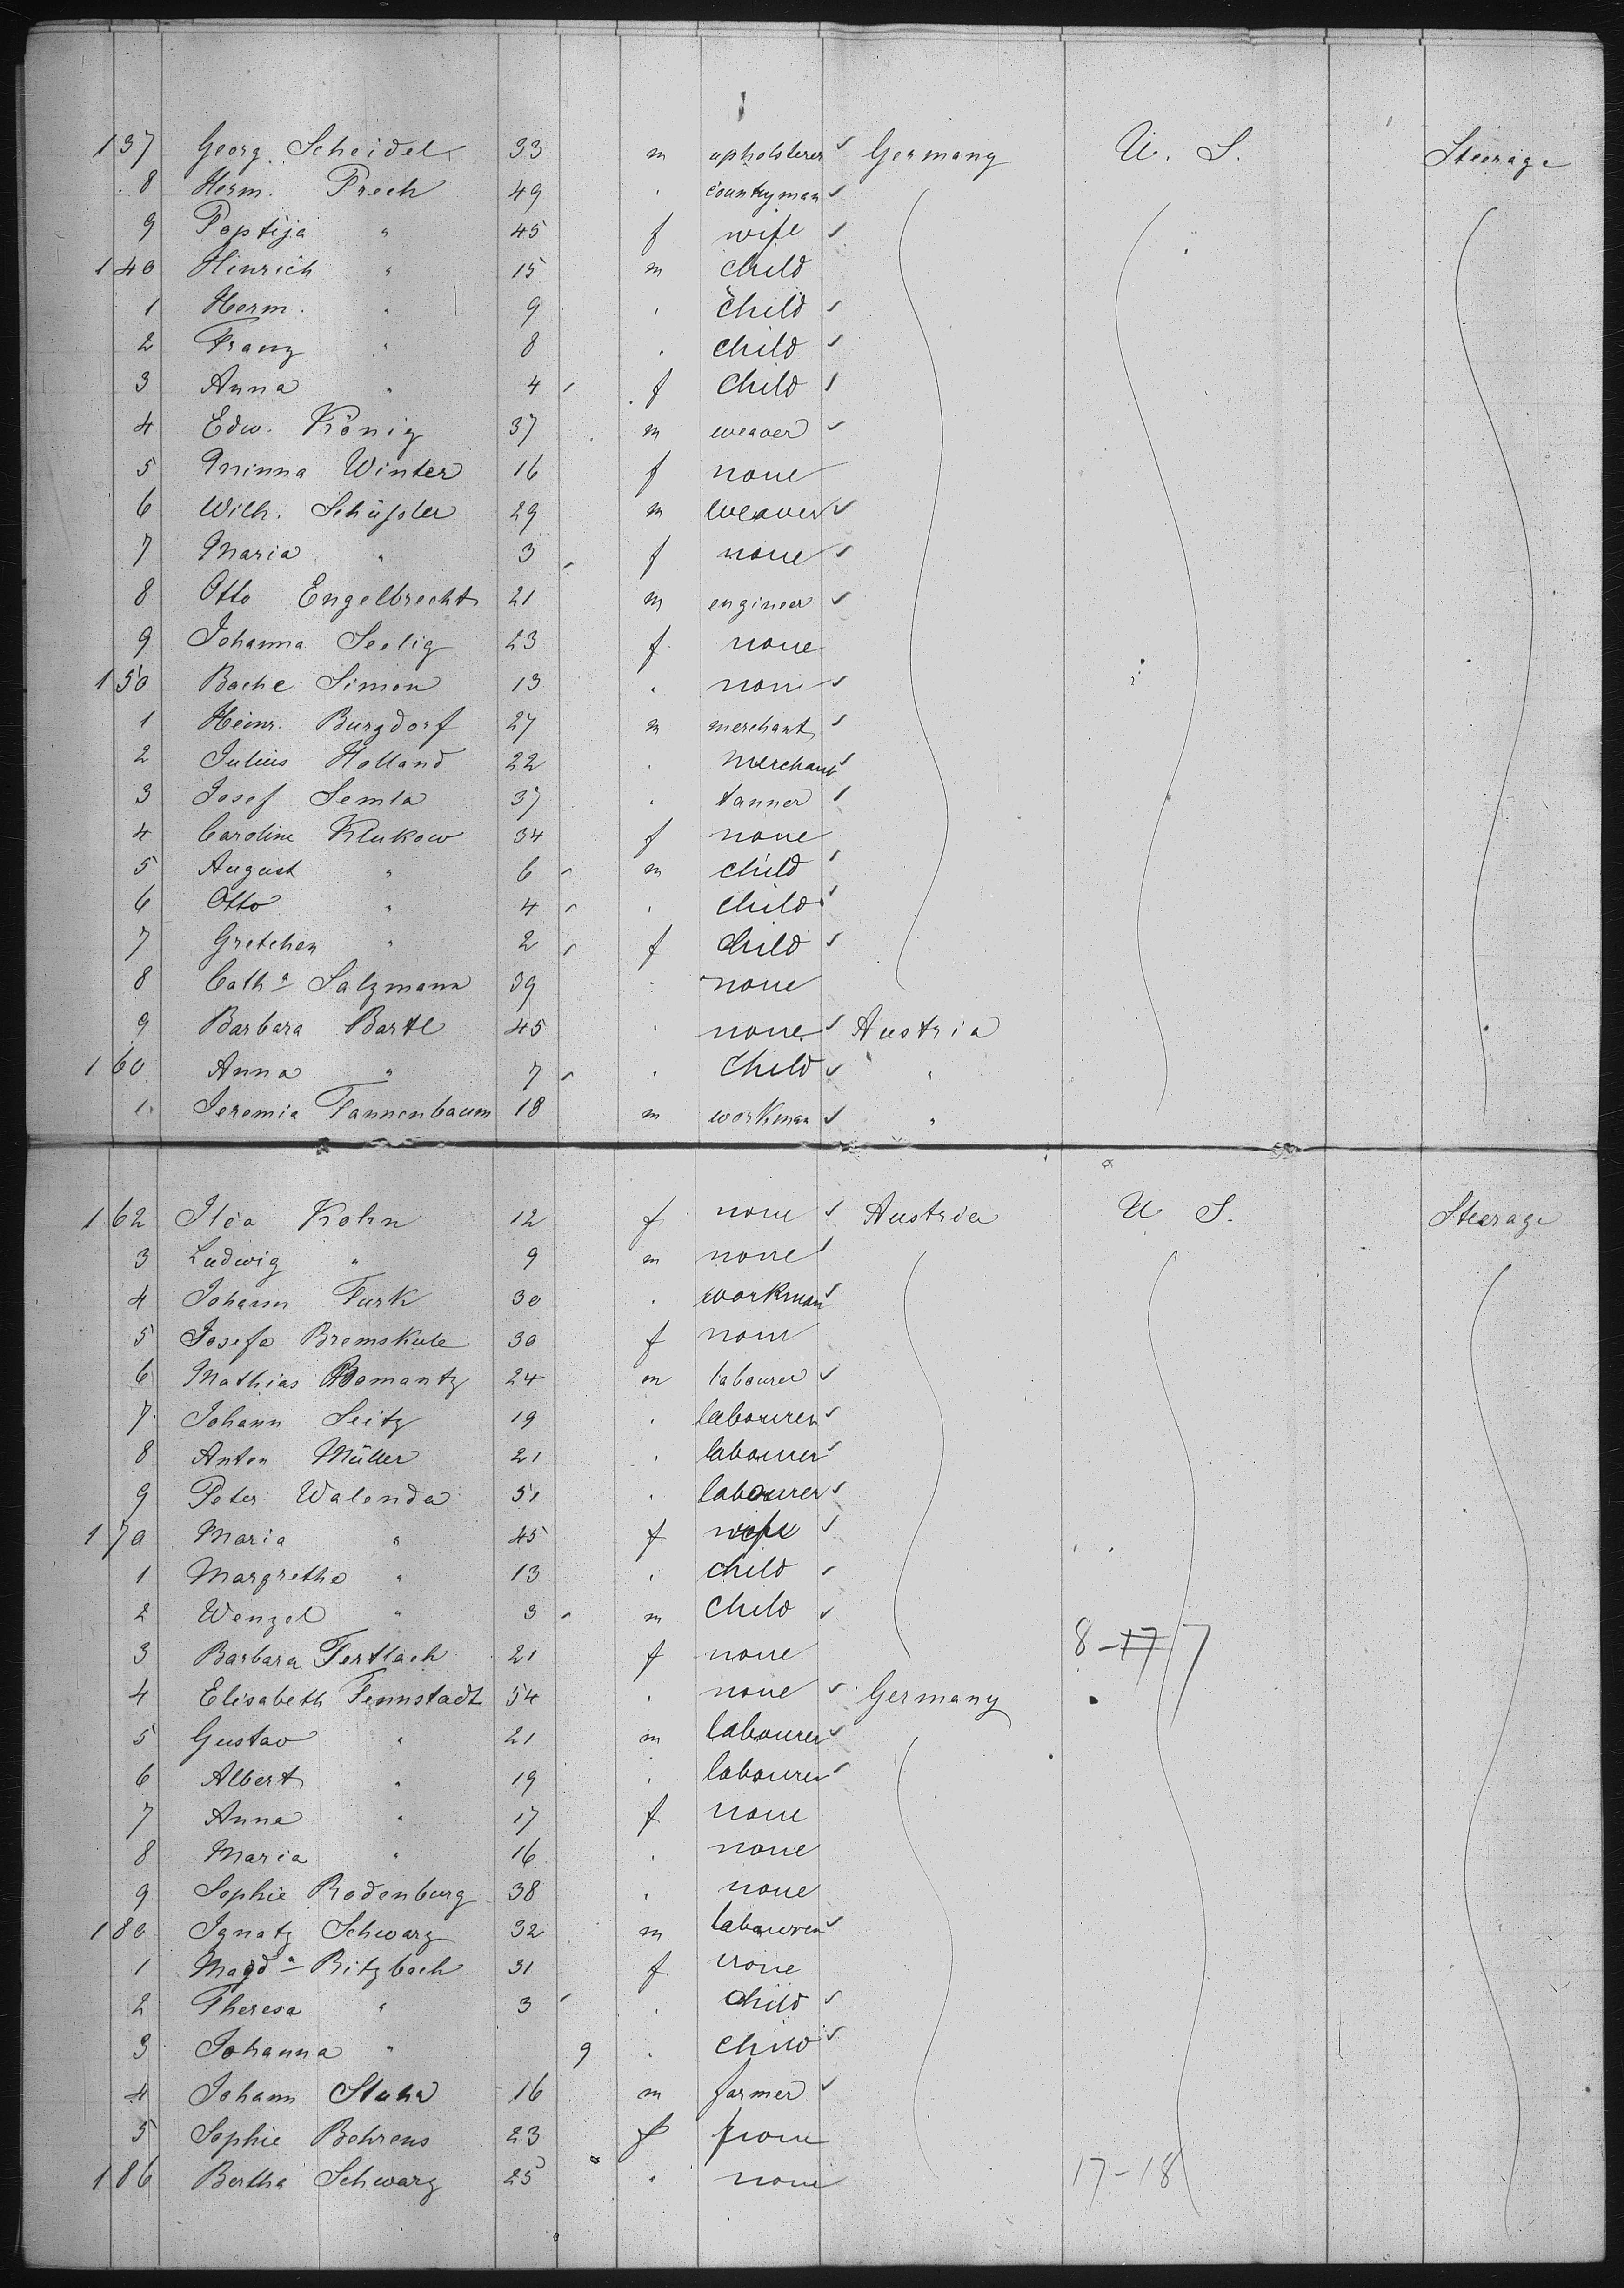 137 Georg Scheidel 33 m upholsterer Germany U. S. Steerage
8 Herm. Frech 49 countryman
9 " 45 f wife
140 Hinrich " 15 m child
1 Herm. " 9 child
2 Franz " 8 child
3 Anna " 4 f child
4 Edw. König 37 m weaver
5 Minna Winter 16 f none
6 Wilh. Schüssler 29 m weaver
7 Maria " 3 f none
8 Otto Engelbrecht 21 m engineer
9 Johanna Seelig 23 f none
150 Bache Simon 13 none
1 Heinr. Burgdorf 27 m merchant
2 Julius Holland 22 merchant
3 Josef Semla 37 tanner
4 Caroline Klukow 34 f none
5 August " 6 m child
6 Otto " 4 child
7 Gretchen " 2 f child
8 Catha Salzmann 39 none
9 Barbara Bartl 45 none Austria
160 Anna " 7 child "
1 Jeremia Tannenbaum 18 m workman "
162 Kohn 12 f none Austria U S. Steerage
3 Ludwig " 9 m none
4 Johann Turk 30 workman
5 Josefa Bremskule 30 f none
6 Mathias 24 m labourer
7 Johann Seitz 19 labourer
8 Anton Müller 21 labourer
9 Peter Walenda 51 labourer
170 Maria " 45 f wife
1 Margrethe " 13 child
2 Wenzel " 3 m child
3 Barbara Fertlach 21 f none 8-17 7
4 Elisabeth Tennstadt 54 none Germany
5 Gustav " 21 m labourer
6 Albert " 19 labourer
7 Anna " 17 f none
8 Maria " 16 none
9 Sophie Rodenburg 38 none
180 Ignatz Schwarz 32 m labourer
1 Magda Ritzbach 31 f none
2 Theresa " 3 child
3 Johanna " 9 child
4 Johann Stuhr 16 m farmer
5 Sophie Behrens 23 f none
186 Bertha Schwarz 25 " none 17-18